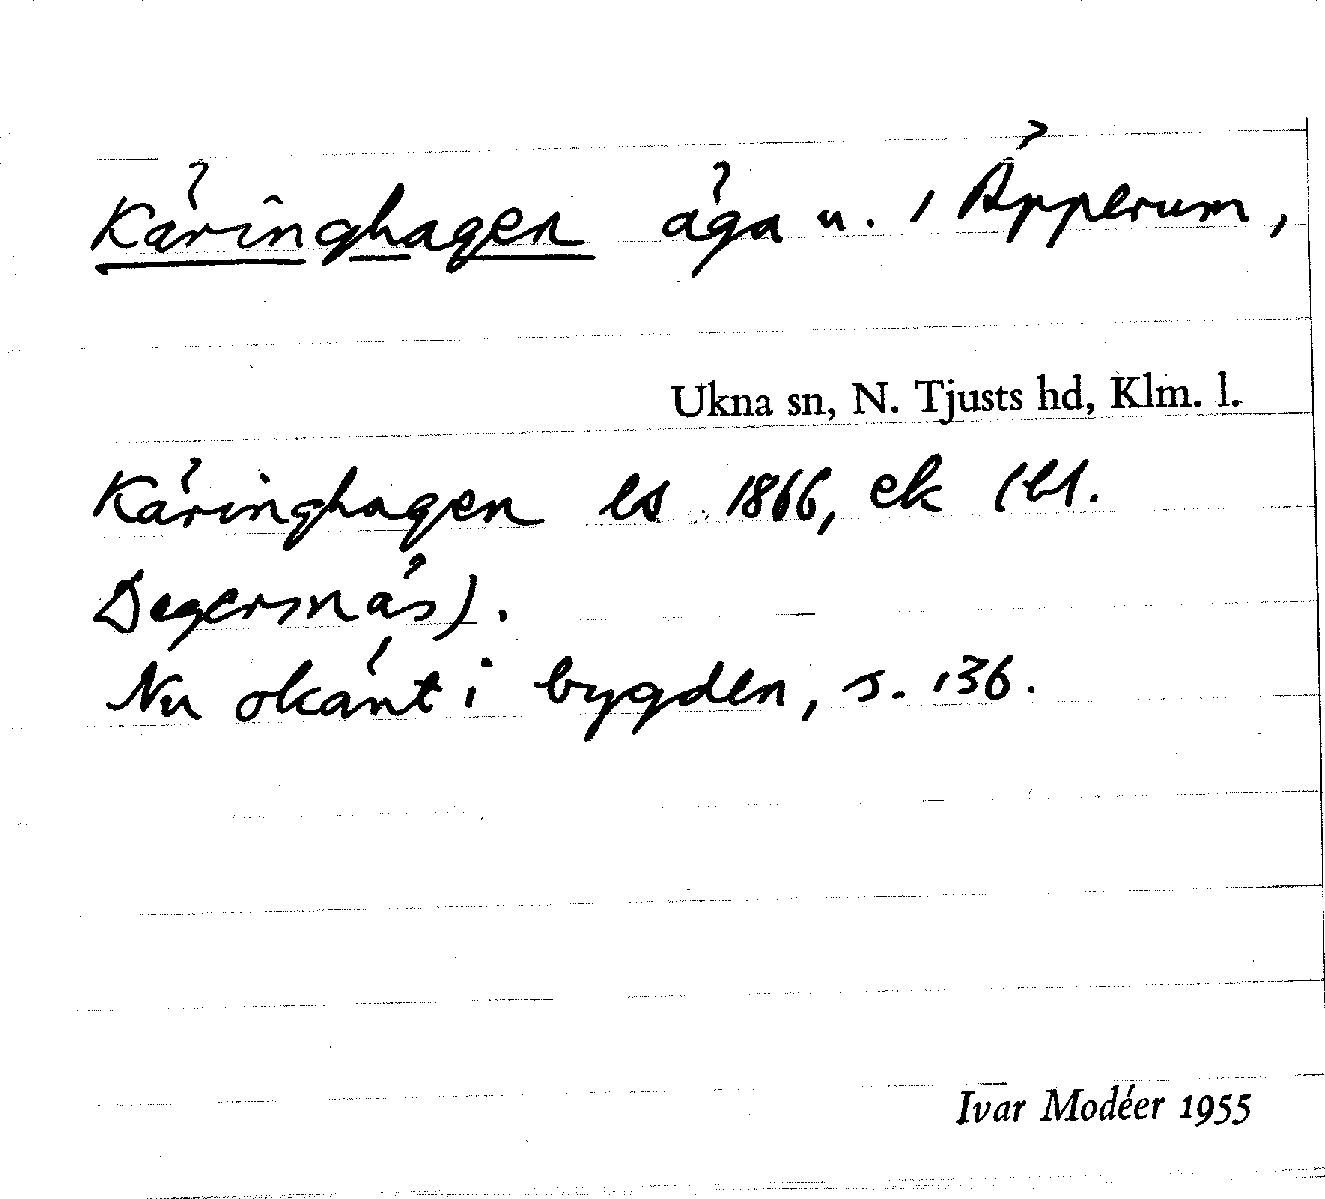 Käringhagen äga u. i Äpperum,
Ukna sn, N. Tjusts hd, Klm. l.
Käringhagen ls 1866, ek (bl.
Degersnäs).
Nu okänt i bygden, s. 136.
Ivar Modéer 1955